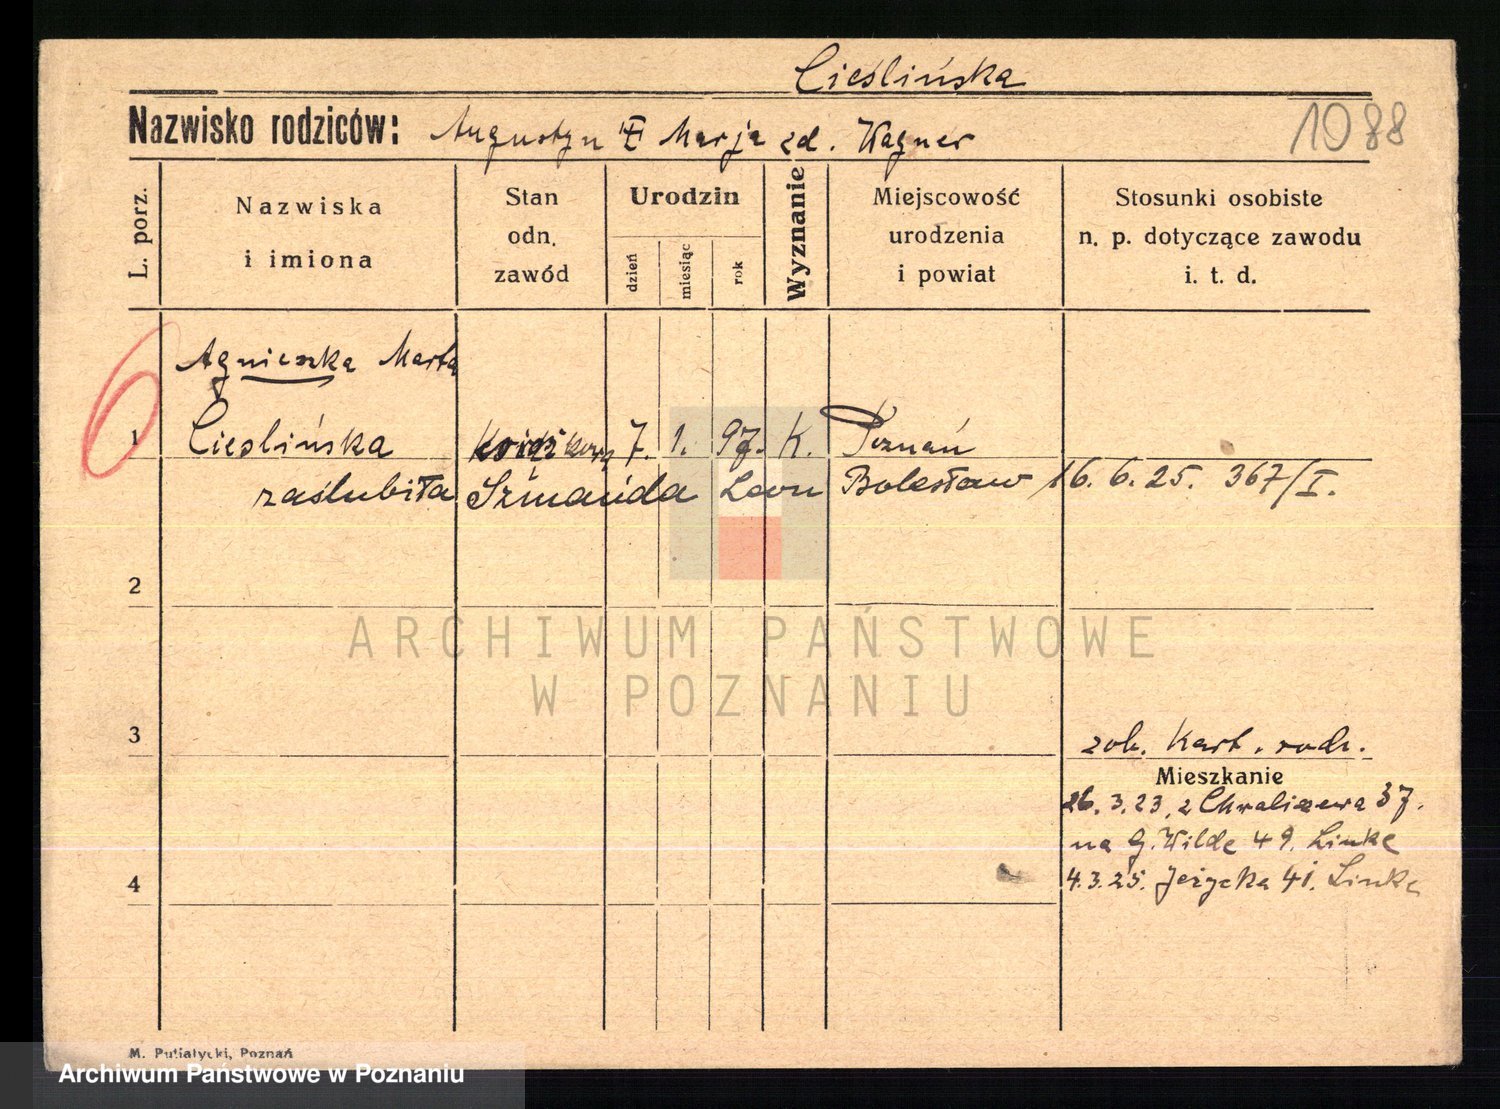 Cieślińska
Nazwisko rodziców: Augustyn Marja zd. Wagner
1088
L. porz.
Nazwiska
i imiona
Stan
odn.
zawód
Urodzin
dzień
miesiąc
rok
Wyznanie
Miejscowość
urodzenia
i powiat
Stosunki osobiste
n. p. dotyczące zawodu
i. t. d.
6
Agnieszka Marta
1 Cieslińska 7. 1. 97. K. Poznań
zaślubiła Szmańda Leon Bolesław 16. 6. 25. 367/I.
2
3
zob. Kart. rodz.
Mieszkanie
26. 3. 23, z Chwaliszewa 37.
na G. Wilde 49. Linke
4
4. 3. 25. Jeżycka 41. Linke
ARCHIWUM PAŃSTWOWE
W POZNANIU
M. Putiatycki, Poznań
Archiwum Państwowe w Poznaniu